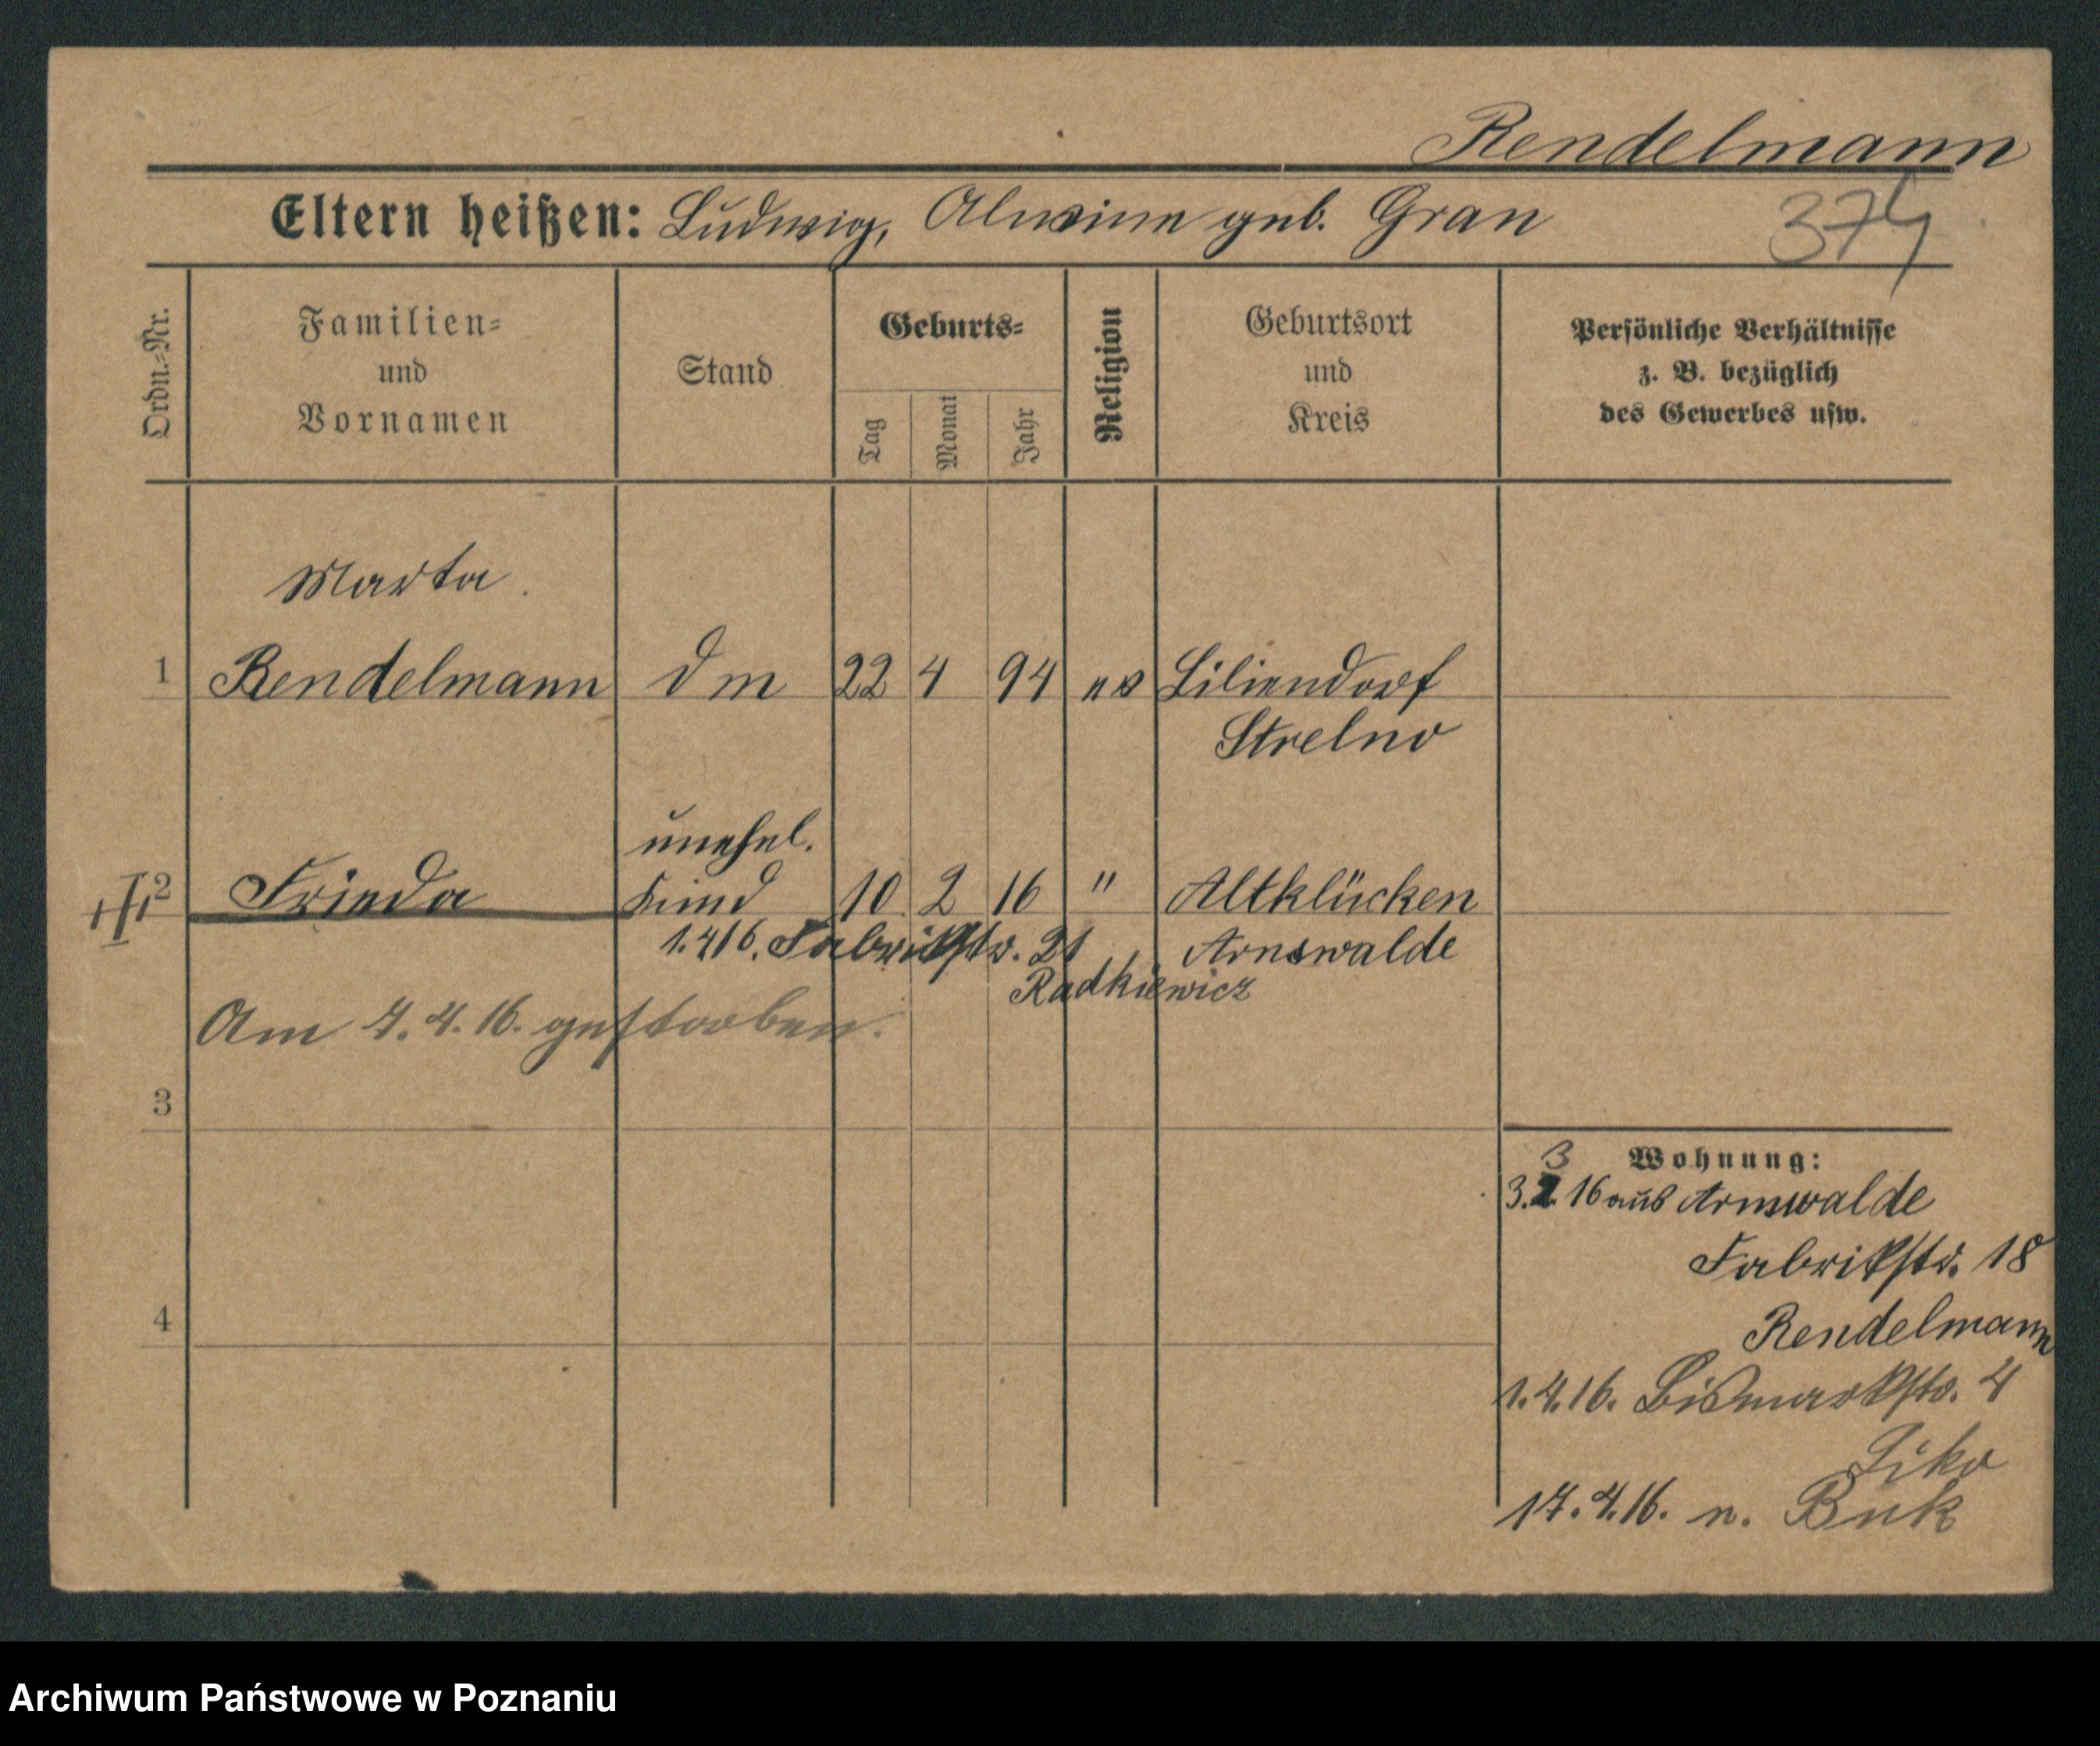 Rendelmann
Eltern heißen: Ludwig, Alwine geb. Gran
374
Ordn.=Nr.
Familien=
und
Vornamen
Stand
Geburts=
Tag
Monat
Jahr
Religion
Geburtsort
und
Kreis
Persönliche Verhältnisse
z. B. bezüglich
des Gewerbes usw.
Marta
1 Rendelmann Dm 22 4 94 ev Liliendorf
Strelno
unehel.
2 Frieda Kind 10 2 16 " Altklücken
1.416. Fabrikstr. 21 Arnswalde
Radkiewicz
Am 7.4.16. gestorben.
3
4
Wohnung:
3
3. 16 aus Arnswalde
Fabrikstr. 18
Rendelmann
1.4.16. Bismarkstr. 4
17.4.16. n. Buk
Archiwum Państwowe w Poznaniu